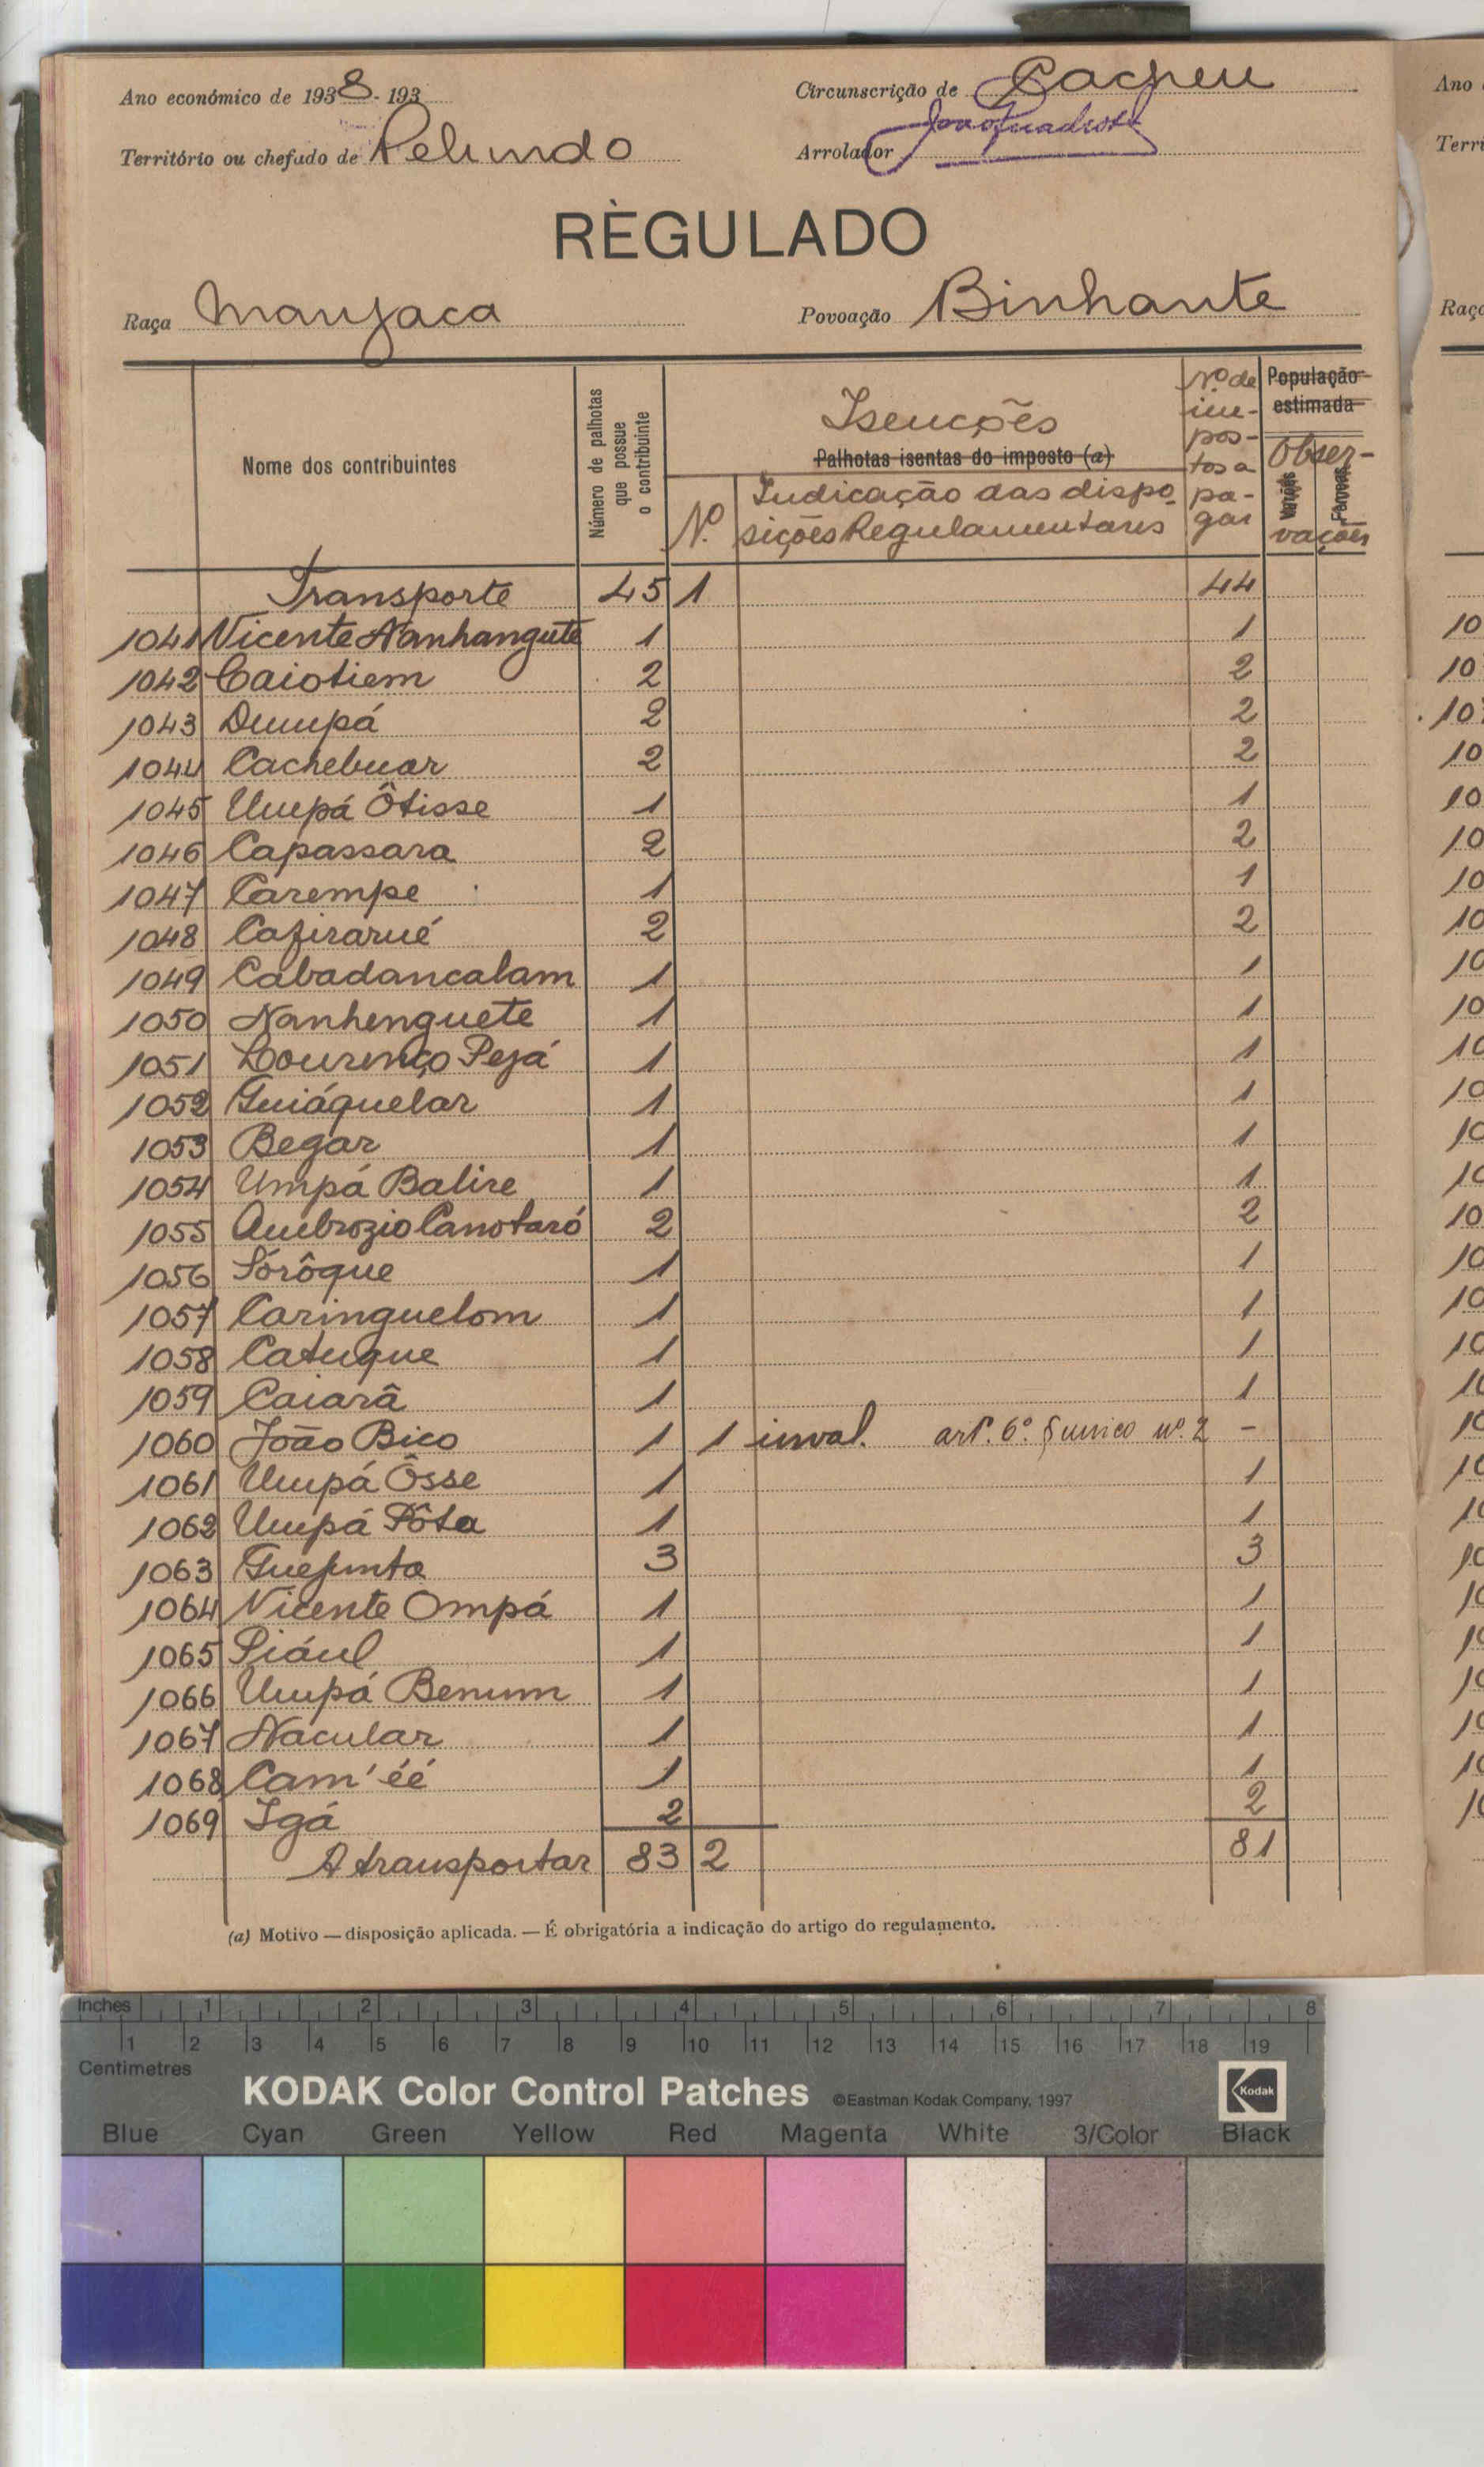 Ano económico de 1938-193
Circunscrição de Cacheu
Território ou chefado de Pelundo
Arrolador
RÈGULADO
Raça Manjaca
Povoação Binhante
Nome dos contribuintes
Número de palhotas que possue o contribuinte
Isenções
Palhotas isentas do imposto (a)
Nº
Indicação das dispo-
sições Regulamentares
Nº de
im-
pos-
tos a
pa-
gar
População
estimada
Obser-
vações
Varões
Fêmeas
Transporte 45 1 44
1041 Vicente Nanhangute 1 1
1042 Caiotiem 2 2
1043 Dumpá 2 2
1044 Cachebuar 2 2
1045 Umpá Ôtisse 1 1
1046 Capassara 2 2
1047 Carempe 1 1
1048 Cafirarué 2 2
1049 Cabadancalam 1 1
1050 Nanhenguete 1 1
1051 Lourenço Pejá 1 1
1052 Guiáquelar 1 1
1053 Begar 1 1
1054 Umpá Balire 1 1
1055 Ambrozio Canotaró 2 2
1056 Sórôque 1 1
1057 Caringuelom 1 1
1058 Catuque 1 1
1059 Caiarâ 1 1
1060 João Bico 1 1 inval. artº. 6º. § unico nº. 2 -
1061 Umpá Ôsse 1 1
1062 Umpá Pôta 1 1
1063 Guejunta 3 3
1064 Vicente Ompá 1 1
1065 Piául 1 1
1066 Umpá Benum 1 1
1067 Nacular 1 1
1068 Cam'éé 1 1
1069 Igá 2 2
A transportar 83 2 81
(a) Motivo — disposição aplicada. — É obrigatória a indicação do artigo do regulamento.
Ano
Terri
Raça
Inches 1 2 3 4 5 6 7 8
1 2 3 4 5 6 7 8 9 10 11 12 13 14 15 16 17 18 19
Centimetres
KODAK Color Control Patches ©Eastman Kodak Company, 1997 Kodak
Blue Cyan Green Yellow Red Magenta White 3/Color Black